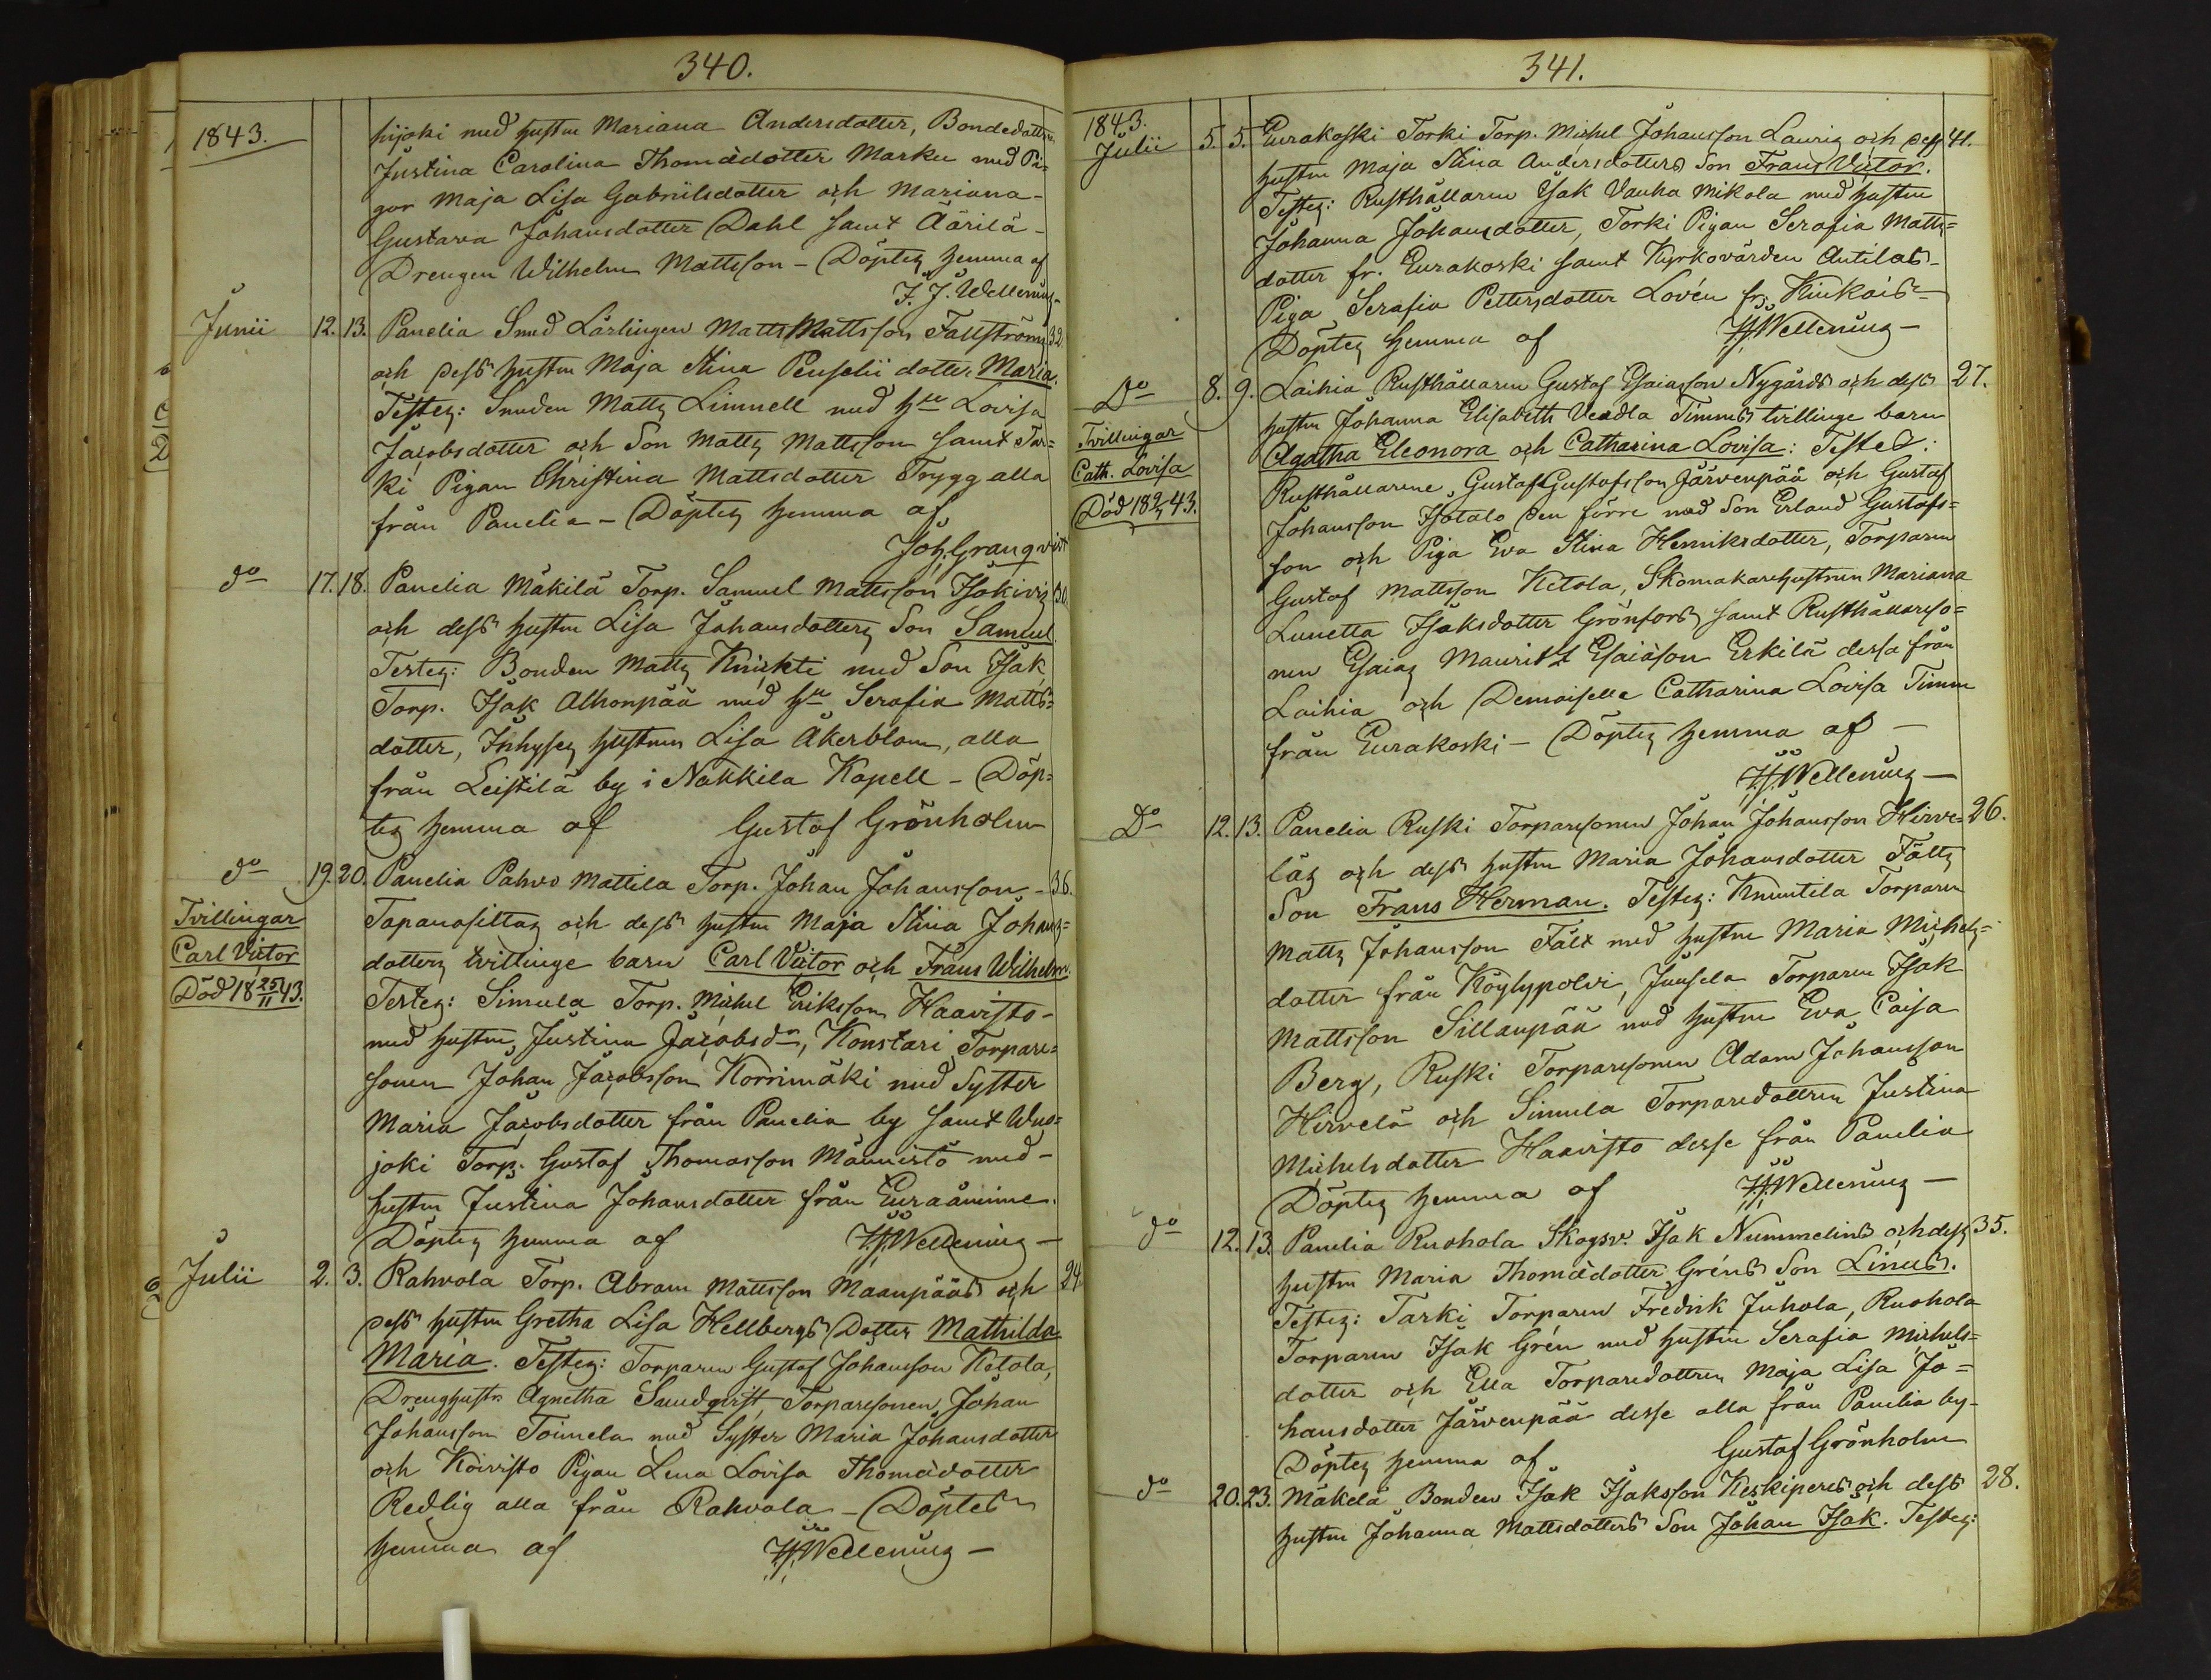 340.
1843.
hijoki med hustru Mariana Andersdotter, Bondedottren
Justina Carolina Thomädotter Marku med Pi=
gor Maja Lisa Gabrielsdotter och Mariana-
Gustava Johansdotter Dahl samt Äärilä-
Drengen Wilhelm Mattsson - Döptes hemma af
J. J. Wellenius
Junii 12. 13. Panelia Smed Lärlingen Matts Mattsson Fallströms 32.
och dess hustru Maja Stina Penselii dotter Maria.
Testes: Smeden Matts Limnell med hu Lovisa
Jacobsdotter och Son Matts Mattsson samt Tar=
ki Pigan Christina Mattsdotter Trygg alla
från Panelia - Döptes hemma af
Joh. Granqvist
do 17. 18. Panelia Mäkilä Torp. Samuel Mattsson Isokivis 30.
och dess hustru Lisa Johansdotters Son Samuel.
Testes: Bonden Matts Knichti med Son Isak
Torp. Isak Alhonpää med hu Serafia Matts=
dotter, Inhyses hustrun Lisa Åkerblom, alla
från Leistilä by i Nakkila Kapell - Döp=
tes hemma af Gustaf Grönholm
do 19. 20. Panelia Pahvo Mattila Torp. Johan Johansson- 36.
Tvillingar
Carl Victor
Död 18 25/11 43.
Tapanasillas och dess hustru Maja Stina Johans=
dotters tvillinge barn Carl Victor och Frans Wilhelm.
Testes: Simula Torp. Michel Eriksson Haavisto-
med hustru Justina Jacobsdr, Konstari Torpare=
sonen Johan Jacobsson Korrimäki med Syster
Maria Jacobsdotter från Panelia by samt Wuo=
joki Torp. Gustaf Thomasson Männistö med-
hustru Justina Johansdotter från Euraåminne.
Döptes hemma af J.J. Wellenius -
Julii 2. 3. Rahvola Torp. Abram Mattsson Maanpääs och 24.
dess hustru Gretha Lisa Hellbergs Dotter Mathilda
Maria. Testes: Torparen Gustaf Johansson Ketola,
Drenghustr. Agnetha Sandqvist, Torparesonen Johan
Johansson Toimela med Syster Maria Johansdotter
och Koivisto Pigan Lena Lovisa Thomädotter
Redlig alla från Rahvola - Döptes
hemma af J.J. Wellenius -
341.
1843.
Julii 5. 5. Eurakoski Torki Torp. Michel Johansson Lauris och dess 41.
hustru Maja Stina Andersdotters Son Frans Victor.
Testes: Rusthållaren Isak Vanha Mikola med hustru
Johanna Johansdotter, Torki Pigan Serafia Matts=
dotter fr. Eurakoski samt Kyrkovärden Antilas-
Piga Serafia Pettersdotter Lovén fr. Kiukais-
Döptes hemma af J.J. Wellenius -
Do 8. 9. Laihia Rusthållaren Gustaf Esaiasson Nygårds och dess 27.
Tvillingar
Cath. Lovisa
Död 18 2/9 43.
hustru Johanna Elisabeth Vendla Timms tvillinge barn
Agatha Eleonora och Catharina Lovisa: Testes:
Rusthållarene, Gustaf Gustafsson Järvenpää och Gustaf
Johansson Isotalo den förre med Son Erland Gustafs=
son och Piga Eva Stina Henriksdotter, Torparen
Gustaf Mattsson Ketola, Skomakarehustrun Mariana
Lunetta Isaksdotter Grönfors, samt Rusthållareso=
nen Esaias Mauritz Esaiäson Erkilä dessa från
Laihia och Demoiselle Catharina Lovisa Timm
från Eurakoski - Döptes hemma af -
J.J. Wellenius -
Do 12. 13. Panelia Ruski Torparesonen Johan Johansson Hirve= 26.
läs och dess hustru Maria Johansdotter Fälts
Son Frans Herman. Testes: Knuutila Torparen
Matts Johansson Fält med hustru Maria Michels=
dotter från Köylypolvi, Juusela Torparen Isak
Mattsson Sillanpää med hustru Eva Caisa
Berg, Ruski Torparesonen Adam Johansson
Hirvelä och Simula Torparedottren Justina
Michelsdotter Haavisto desse från Panelia
Döptes hemma af J.J. Wellenius -
do 12. 13. Panelia Ruohola Skogsv. Isak Nummelins och dess 35.
hustru Maria Thomädotter Gréns Son Linus.
Testes: Tarki Torparen Fredrik Juhola, Ruohola
Torparen Isak Grén med hustru Serafia Michels=
dotter och Ella Torparedottren Maja Lisa Jo=
hansdotter Järvenpää desse alla från Panelia by-
Döptes hemma af Gustaf Grönholm
do 20. 23. Mäkelä Bonden Isak Isaksson Keskiperes och dess 28.
hustru Johanna Mattsdotters Son Johan Isak. Testes: